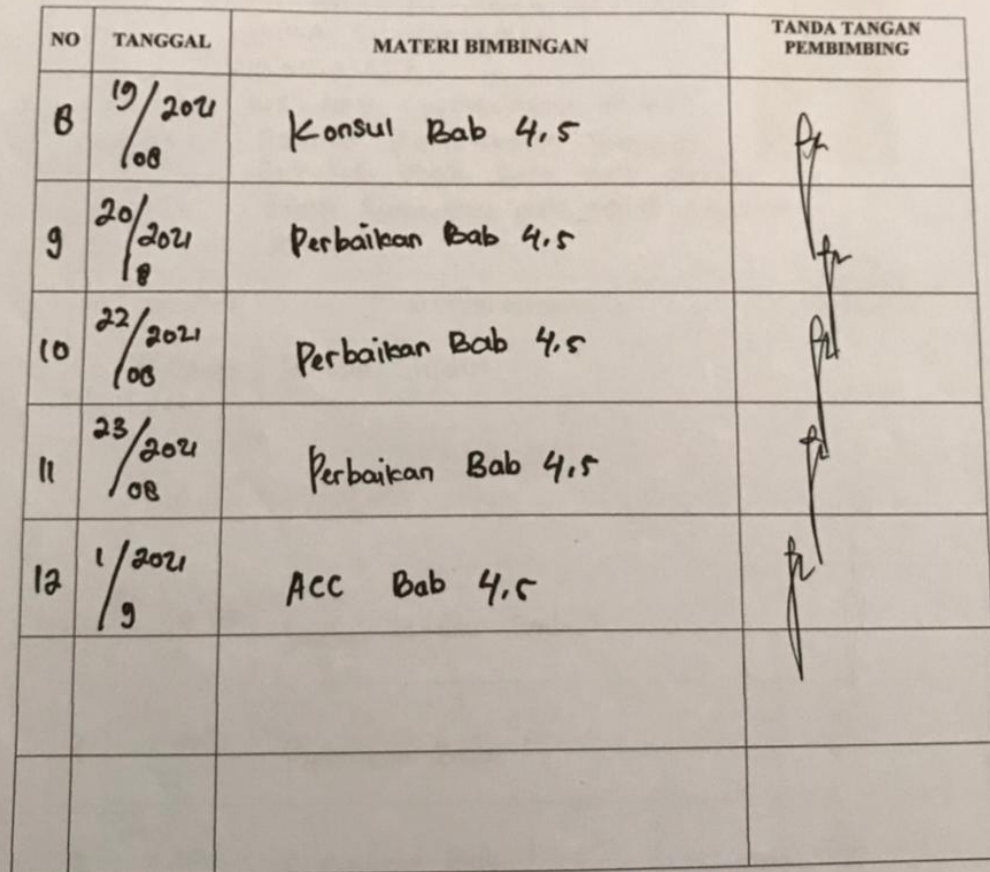 NO TANGGAL MATERI BIMBINGAN TANDA TANGAN PEMBIMBING
8 19/08 2021 Konsul Bab 4,5
9 20/8 2021 Perbaikan Bab 4,5
10 22/08 2021 Perbaikan Bab 4,5
11 23/08 2021 Perbaikan Bab 4,5
12 1/9 2021 ACC Bab 4,5